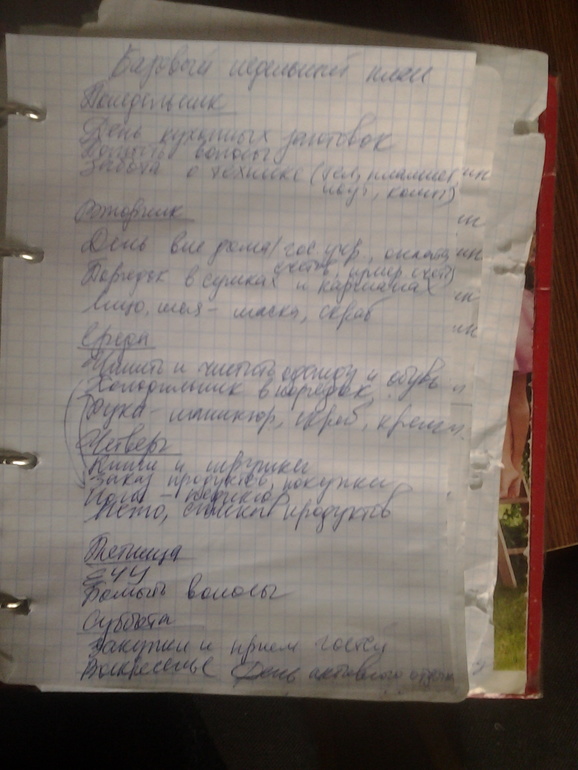 Базовый недельный план
Понедельник
День кухонных заготовок
Помыть волосы
Забота о технике (тел, планшет
ноут, комп)
Вторник
День вне дома (гос. учр, оплата
счета,
Порядок в сумках и карманах
Лицо, шея - маска, скраб
Среда
Чинить и чистить одежду и обувь
Холодильник в порядок
Руки - маникюр, скраб, крем
Четверг
Книги и игрушки
Заказ продуктов, покупки
Меню, список продуктов
Пятница
Помыть волосы
Суббота
Закупки и прием гостей
Воскресенье День активного отдыха